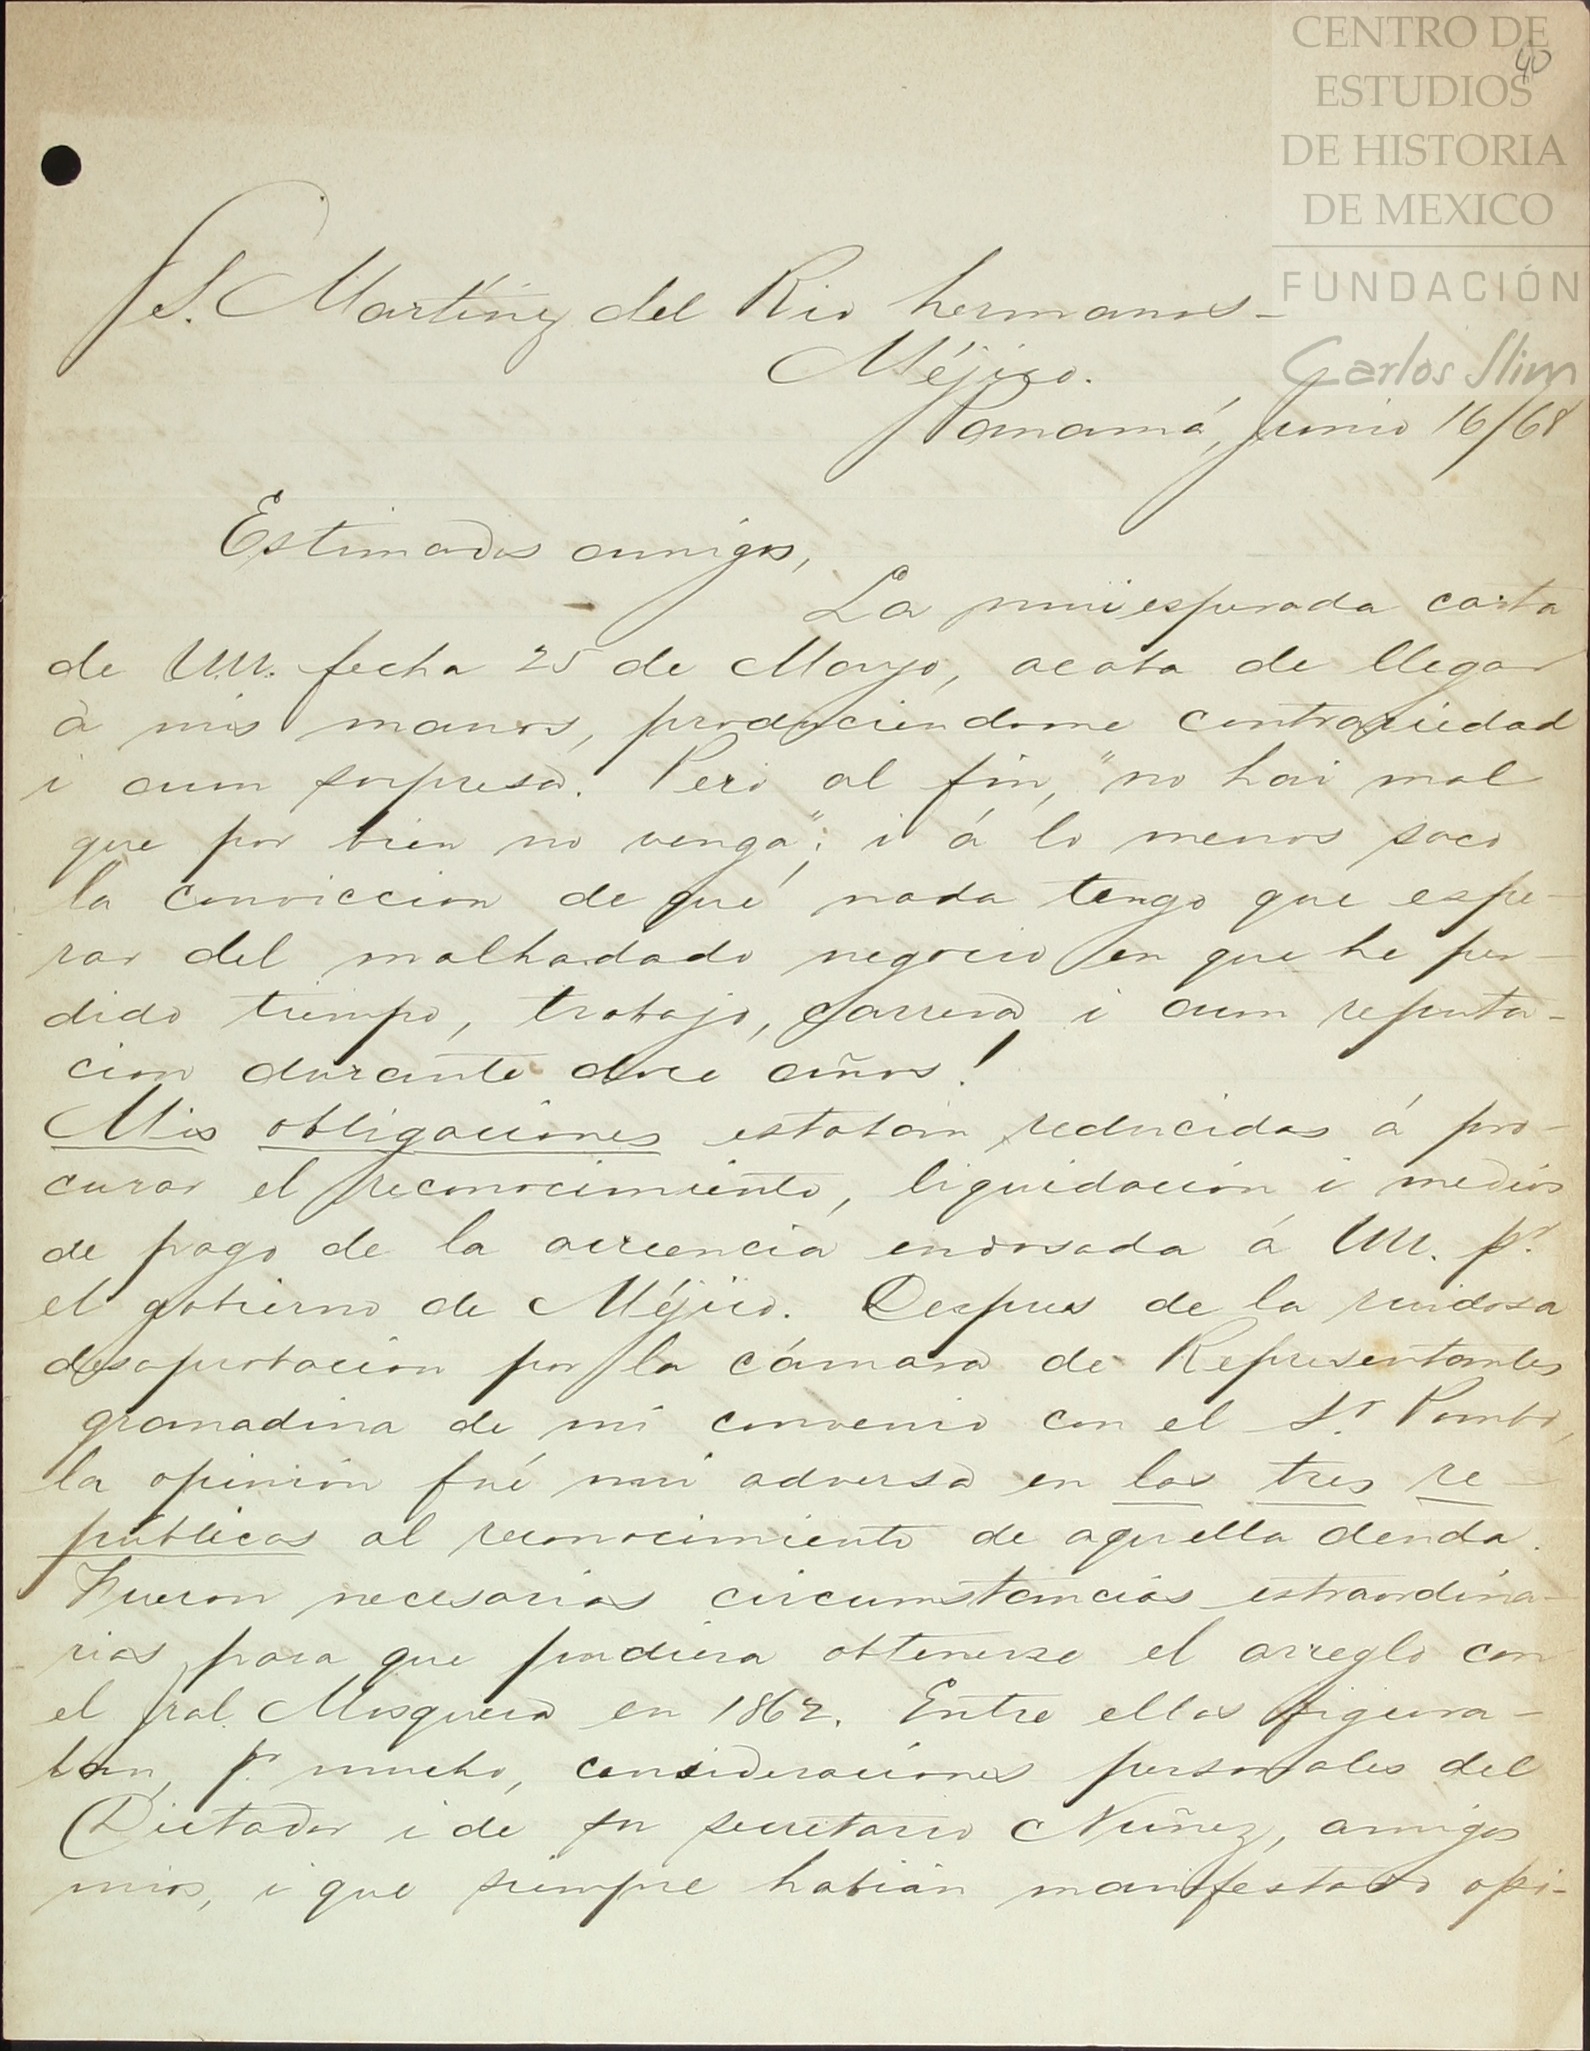 CENTRO DE
ESTUDIOS
DE HISTORIA
DE MEXICO
FUNDACIÓN
Carlos Slim
40
S.S. Martínez del Rio hermanos_
Méjico.
Panamá, Junio 16/68
Estimados amigos,
La mui esperada carta
de UU. fecha 25 de Mayo, acaba de llegar
á mis manos, produciendome contrariedad
i aun sorpresa. Pero al fin, "no hai mal
que por bien no venga"; i á lo menos saco
la conviccion de que nada tengo que espe-
rar del malhadado negocio en que he per-
dido tiempo, trabajo, carrera i aun reputa-
cion durante doce años!
Mis obligaciones estaban reducidas á pro-
curar el reconocimiento, liquidación i medios
de pago de la acreencia endosada á UU. pr.
el gobierno de Méjico. Despues de la ruidosa
desaprobacion por la cámara de Representantes
granadina de mi convenio con el Sr. Pombo,
la opinión fué mui adversa en las tres re-
públicas al reconocimiento de aquella deuda.
Fueron necesarias circumstancias estraordina-
rias para que pudiera obtenerse el arreglo con
el Jral. Mosquera en 1862. Entre ellas figura-
ban, pr. mucho, consideraciónes personales del
Dictador i de su secretario Nuñez, amigos
mios, i que siempre habián manifestado opi-